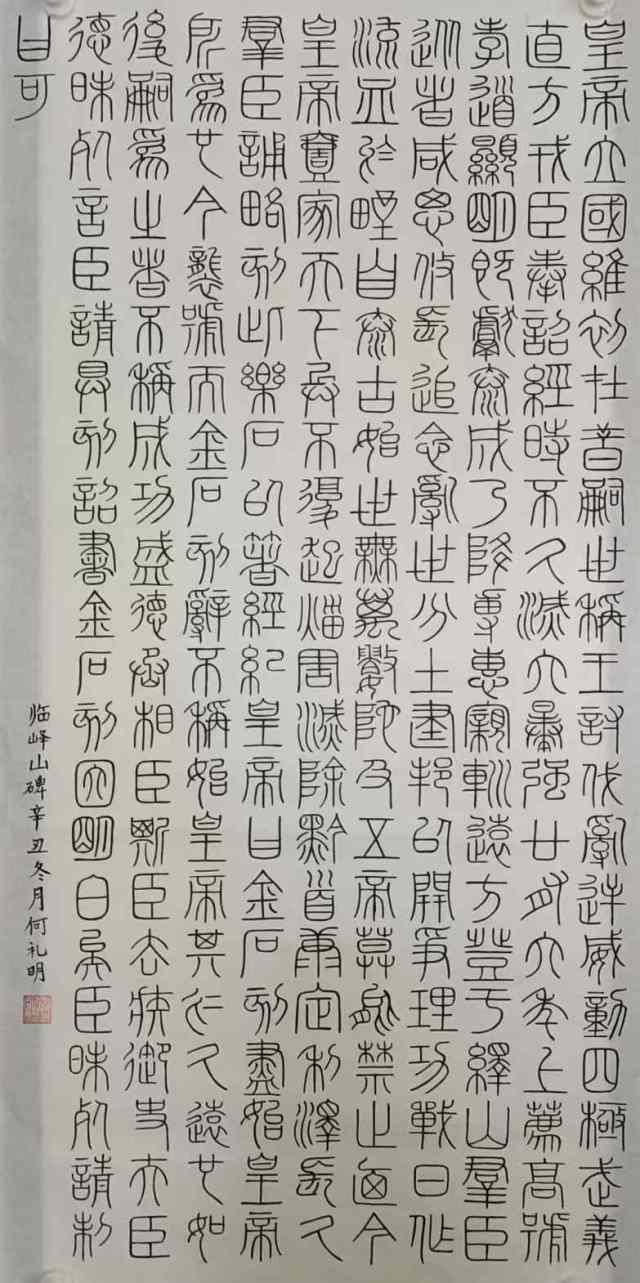 皇帝立國維初在昔嗣世稱王討伐亂逆威動四極武義
直方戎臣奉詔經時不久滅六暴強廿有六年上薦高號
孝道顯明既獻泰成乃降專惠親巡遠方登于繹山羣臣
從者咸思攸長追念亂世分土建邦以開爭理功戰日作
流血於野自泰古始世無萬數陀及五帝莫能禁止廼今
皇帝壹家天下兵不復起災害滅除黔首康定利澤長久
羣臣誦略刻此樂石以著經紀皇帝曰金石刻盡始皇帝
所爲也今襲號而金石刻辭不稱始皇帝其於久遠也如
後嗣爲之者不稱成功盛德丞相臣斯臣去疾御史夫臣
德昧死言臣請具刻詔書金石刻因明白矣臣昧死請制
曰可
临峄山碑辛丑冬月何礼明